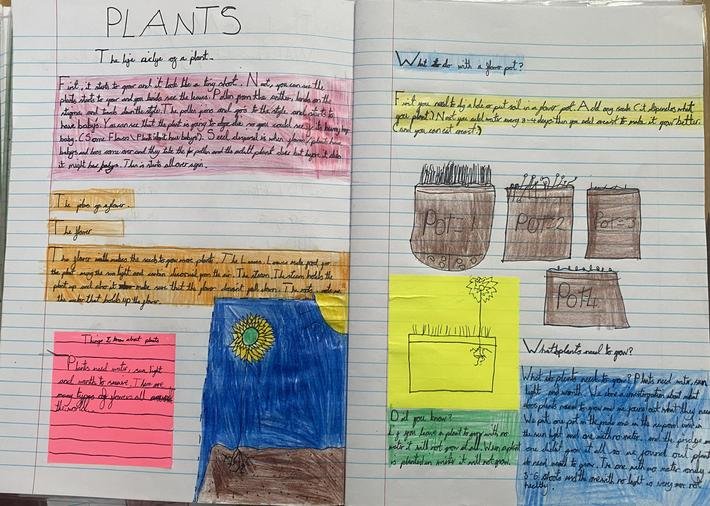 PLANTS
The life cicle of a plant.
First, it starts to grow and it look like a tiny shoot. Next, you can see the
plants starts to grow and you see the leaves. Pollen from the anther, lands on the
stigma and travels down the style. The pollen goes to the style and starts to
have babys. You can see that the plant is going to
baby (Some Plants have babys). Seed dispersal is when plants have
babys and
it might have babys. This is starts all over again.
The jobs of a flower.
The flower
The flower makes the seeds to grow more plants. The Leaves. Leaves make food for
the plant using the sun light and carbon from the air. The steam. The steam holds the
plant up and make sure that the plant doesnt fall down. The roots
the that holds up the flower.
Things I know about plants
Plants need water, sun light
and warmth to survive. There are
many types of flowers all
the world.
What to do with a flower pot?
First you need to dig a hole or put soil in a flower pot. Add any seeds (it depends what
you plant) Next you add water every 3-4 days then you add to make it grow better.
(and you can eat
POT=1
POT=2
POT=3
POT4
Did you know?
If you leave a plant to grow with no
water it will not grow at all. When a plant
is planted in it will not grow.
What plants need to grow?
What do plants need to grow? Plants need water, sun
light, and warmth. We done a investigation about what
does plants need to grow and we found out what they need
We put one pot in the
the sun light and one with no water, and the fridge
one didnt grow at all so we found out plants
need to grow. The one with no water only
5-6 shoots and the one with no light is very not
healthy.